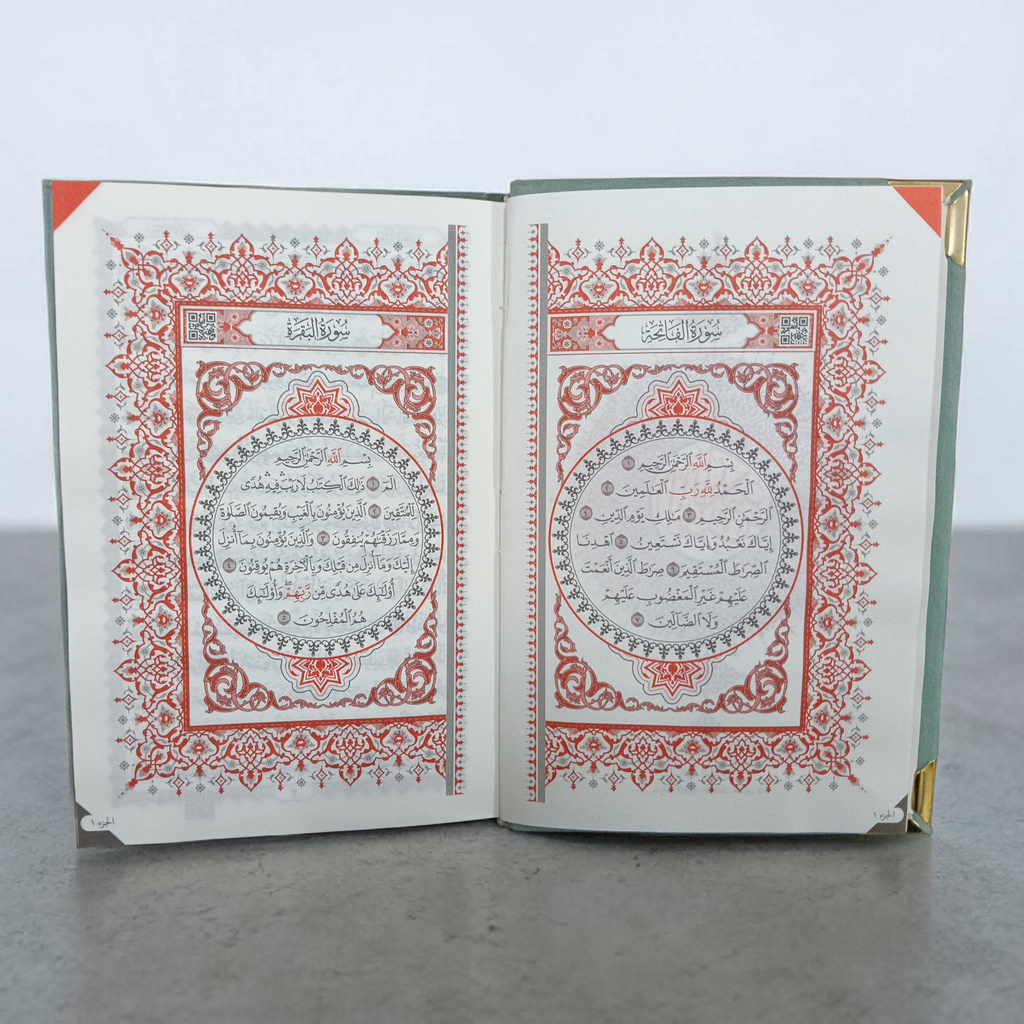 سُورَةُ الفَاتِحَةِ
بِسْمِ ٱللَّهِ ٱلرَّحْمَٰنِ ٱلرَّحِيمِ ١
ٱلْحَمْدُ لِلَّهِ رَبِّ ٱلْعَٰلَمِينَ ٢
ٱلرَّحْمَٰنِ ٱلرَّحِيمِ ٣ مَٰلِكِ يَوْمِ ٱلدِّينِ ٤
إِيَّاكَ نَعْبُدُ وَإِيَّاكَ نَسْتَعِينُ ٥ ٱهْدِنَا
ٱلصِّرَٰطَ ٱلْمُسْتَقِيمَ ٦ صِرَٰطَ ٱلَّذِينَ أَنْعَمْتَ
عَلَيْهِمْ غَيْرِ ٱلْمَغْضُوبِ عَلَيْهِمْ
وَلَا ٱلضَّآلِّينَ ٧
الجزء ١
سُورَةُ البَقَرَةِ
بِسْمِ ٱللَّهِ ٱلرَّحْمَٰنِ ٱلرَّحِيمِ
الٓمٓ ١ ذَٰلِكَ ٱلْكِتَٰبُ لَا رَيْبَ ۛ فِيهِ ۛ هُدًى
لِّلْمُتَّقِينَ ٢ ٱلَّذِينَ يُؤْمِنُونَ بِٱلْغَيْبِ وَيُقِيمُونَ ٱلصَّلَوٰةَ
وَمِمَّا رَزَقْنَٰهُمْ يُنفِقُونَ ٣ وَٱلَّذِينَ يُؤْمِنُونَ بِمَآ أُنزِلَ
إِلَيْكَ وَمَآ أُنزِلَ مِن قَبْلِكَ وَبِٱلْءَاخِرَةِ هُمْ يُوقِنُونَ ٤
أُو۟لَٰٓئِكَ عَلَىٰ هُدًى مِّن رَّبِّهِمْ ۖ وَأُو۟لَٰٓئِكَ
هُمُ ٱلْمُفْلِحُونَ ٥
الجزء ١